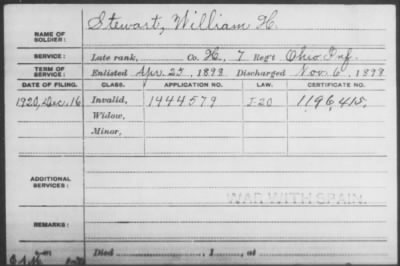 NAME OF SOLDIER: Stewart, William H.
SERVICE: Late rank, Co. H, 7 Reg't Ohio Inf.
TERM OF SERVICE: Enlisted Apr. 25, 1898 Discharged Nov. 6, 1898
DATE OF FILING. CLASS. APPLICATION NO. LAW. CERTIFICATE NO.
1920, Dec. 16 Invalid, 1444579 J-20 1196415.
Widow,
Minor,
ADDITIONAL SERVICES:
WAR WITH SPAIN.
REMARKS:
Died , 1 , at